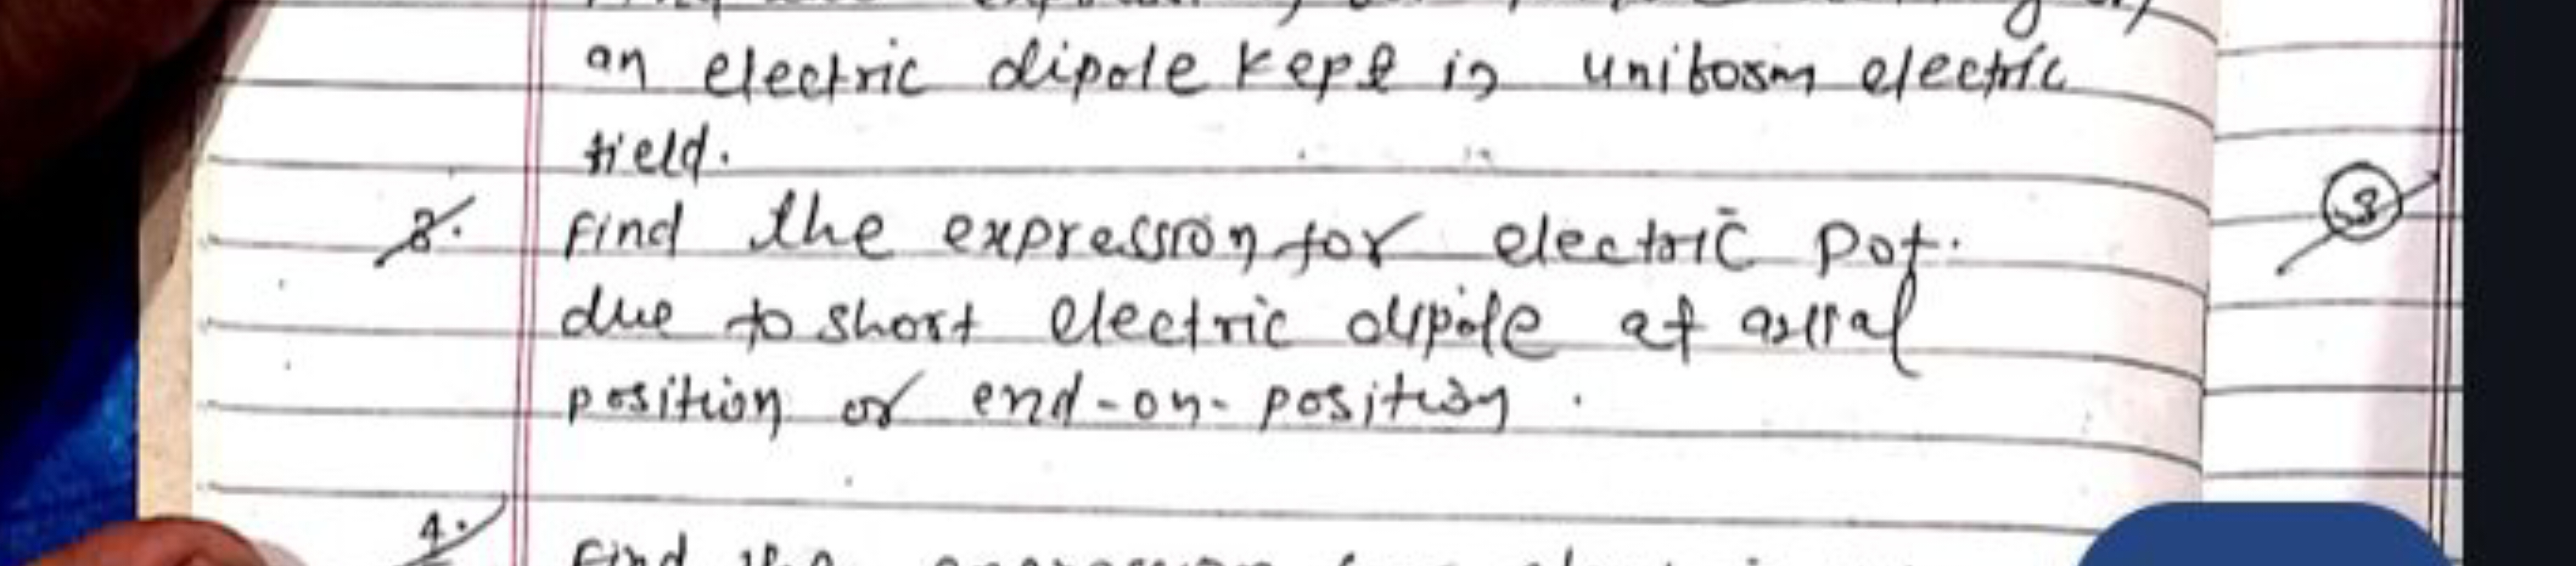 an electric dipole kept in uniform electric
field.
3. Find the expression for electric pot.
due to short electric dipole at axial
position or end-on-position.
3
4. Find the expression for